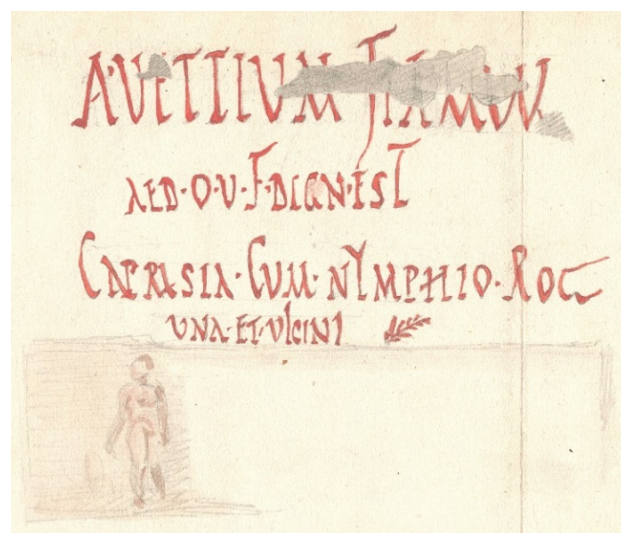 A·VETTIVM FIRMVM
AED·O·V·F·DIGN·EST
CAPRASIA·CVM·NYMPHIO·ROG
VNA·ET·VICINI